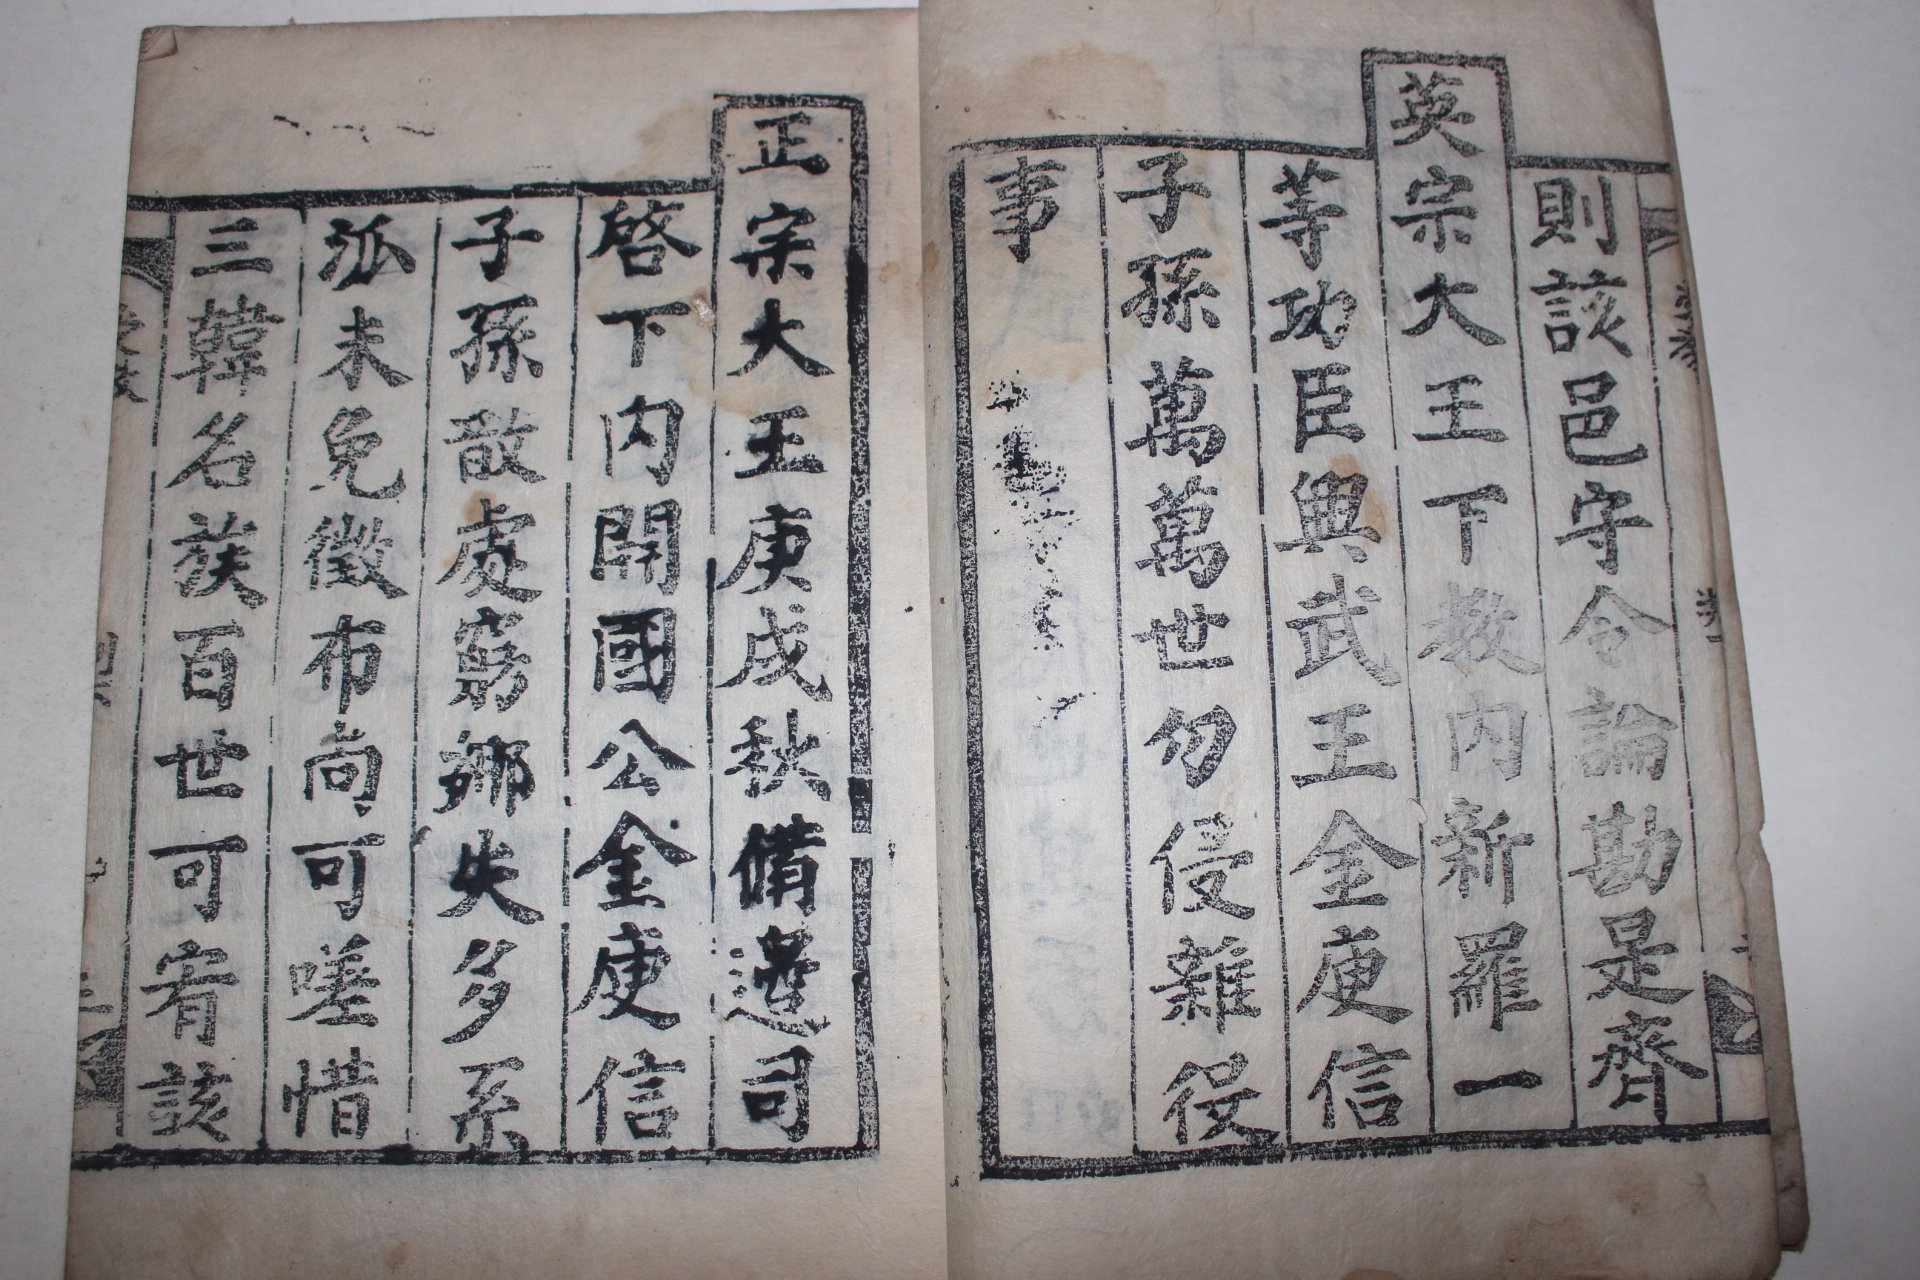 則該邑守令論勘是齊
英宗大王下教內新羅一
等功臣興武王金庾信
子孫萬萬世勿侵雜役
事
正宗大王庚戌秋備邊司
啓下內開國公金庾信
子孫散處窮鄕失多系
派未免徵布尙可嗟惜
三韓名族百世可宥該